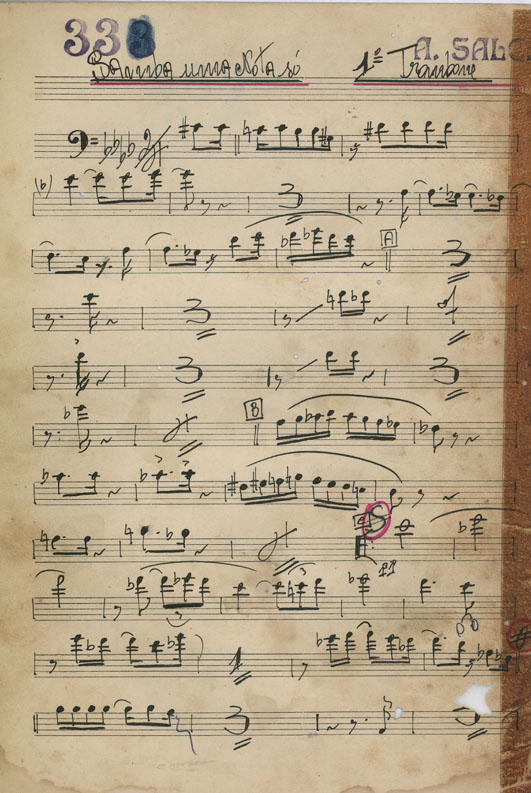 338
Samba uma Nota só 1º Trombone A. SALE
3
A 3
3
3 3
B
3
1
3